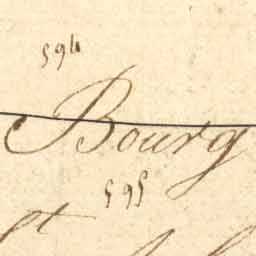 594
Bourg
595